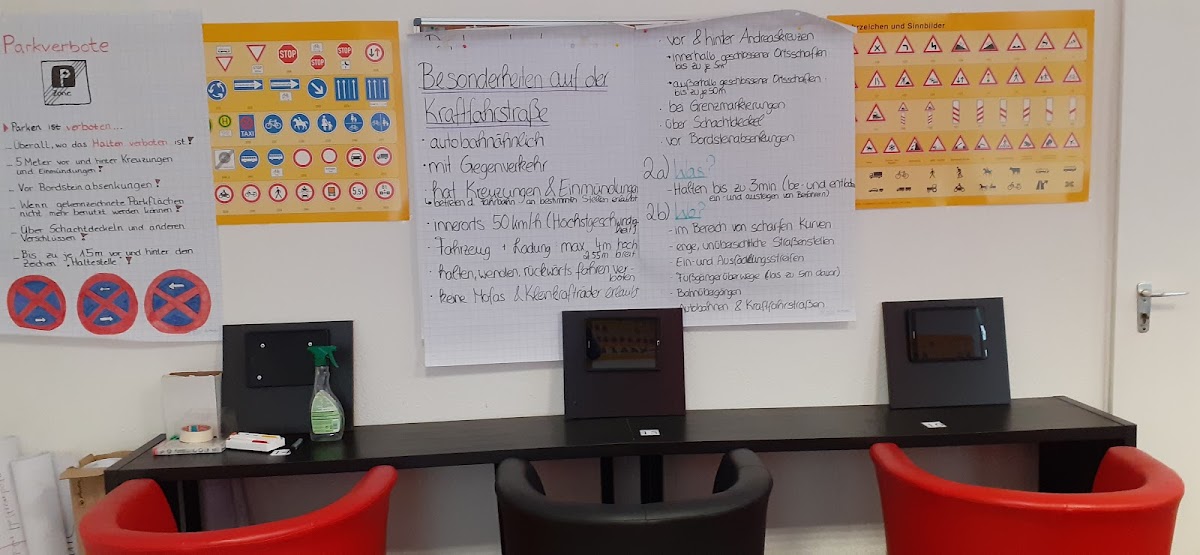 Parkverbote
P
ZONE
Parken ist verboten...
- Überall, wo das Halten verboten ist!
- 5 Meter vor und hinter Kreuzungen
und Einmündungen!
- Vor Bordsteinabsenkungen!
- Wenn gekennzeichnete Parkflächen
nicht mehr benutzt werden können!
- Über Schachtdeckeln und anderen
Verschlüssen!
- Bis zu je 15m vor und hinter dem
Zeichen "Haltestelle"!
STOP
STOP
STOP
H
TAXI
5,5t
Besonderheiten auf der
Kraftfahrstraße
· autobahnähnlich
· mit Gegenverkehr
· hat Kreuzungen & Einmündungen
an bestimmten Stellen erlaubt
· innerorts 50 km/h (Höchstgeschwindig
keit)
· Fahrzeug + Ladung max. 4m hoch
2,55m breit
· halten, wenden, rückwärts fahren ver-
boten
· keine Mofas & Kleinkrafträder erlaubt
· vor & hinter Andreaskreuzen
· innerhalb geschlossener Ortschaften
bis zu je 5m
· außerhalb geschlossener Ortschaften
bis zu je 50m
· bei Grenzmarkierungen
· über Schachtdeckel
· vor Bordsteinabsenkungen
2a) Was?
- Halten bis zu 3min (be- und entlade
ein- und aussteigen
2b) Wo?
- im Bereich von scharfen Kurven
- enge, unübersichtliche Straßenstellen
- Ein- und Ausfädlungsstreifen
- Fußgängerüberwege (bis zu 5m davor)
- Bahnübergängen
Autobahnen & Kraftfahrstraßen
hrzeichen und Sinnbilder